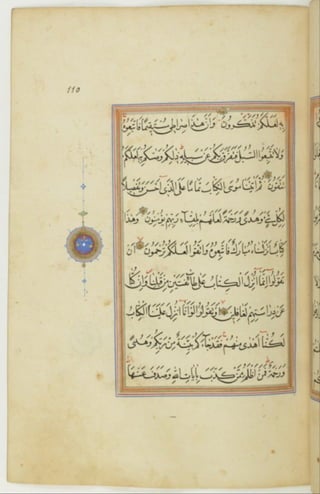 ١١٥
بِهِ لَعَلَّكُمْ تَذَكَّرُونَ وَاَنَّ هٰذَا صِرَاطِى مُسْتَقِيمًا فَاتَّبِعُوهُ
وَلَا تَتَّبِعُوا السُّبُلَ فَتَفَرَّقَ بِكُمْ عَنْ سَبِيلِهِ ذٰلِكُمْ وَصّٰيكُمْ بِهِ لَعَلَّكُمْ
تَتَّقُونَ ثُمَّ اٰتَيْنَا مُوسَى الْكِتَابَ تَمَامًا عَلَى الَّذِى اَحْسَنَ وَتَفْصِيلًا
لِكُلِّ شَىْءٍ وَهُدًى وَرَحْمَةً لَعَلَّهُمْ بِلِقَاءِ رَبِّهِمْ يُؤْمِنُونَ وَهٰذَا
كِتَابٌ اَنْزَلْنَاهُ مُبَارَكٌ فَاتَّبِعُوهُ وَاتَّقُوا لَعَلَّكُمْ تُرْحَمُونَ اَنْ
تَقُولُوا اِنَّمَا اُنْزِلَ الْكِتَابُ عَلٰى طَائِفَتَيْنِ مِنْ قَبْلِنَا وَاِنْ كُنَّا
عَنْ دِرَاسَتِهِمْ لَغَافِلِينَ اَوْ تَقُولُوا لَوْ اَنَّا اُنْزِلَ عَلَيْنَا الْكِتَابُ
لَكُنَّا اَهْدٰى مِنْهُمْ فَقَدْ جَاءَكُمْ بَيِّنَةٌ مِنْ رَبِّكُمْ وَهُدًى
وَرَحْمَةٌ فَمَنْ اَظْلَمُ مِمَّنْ كَذَّبَ بِاٰيَاتِ اللّٰهِ وَصَدَفَ عَنْهَا